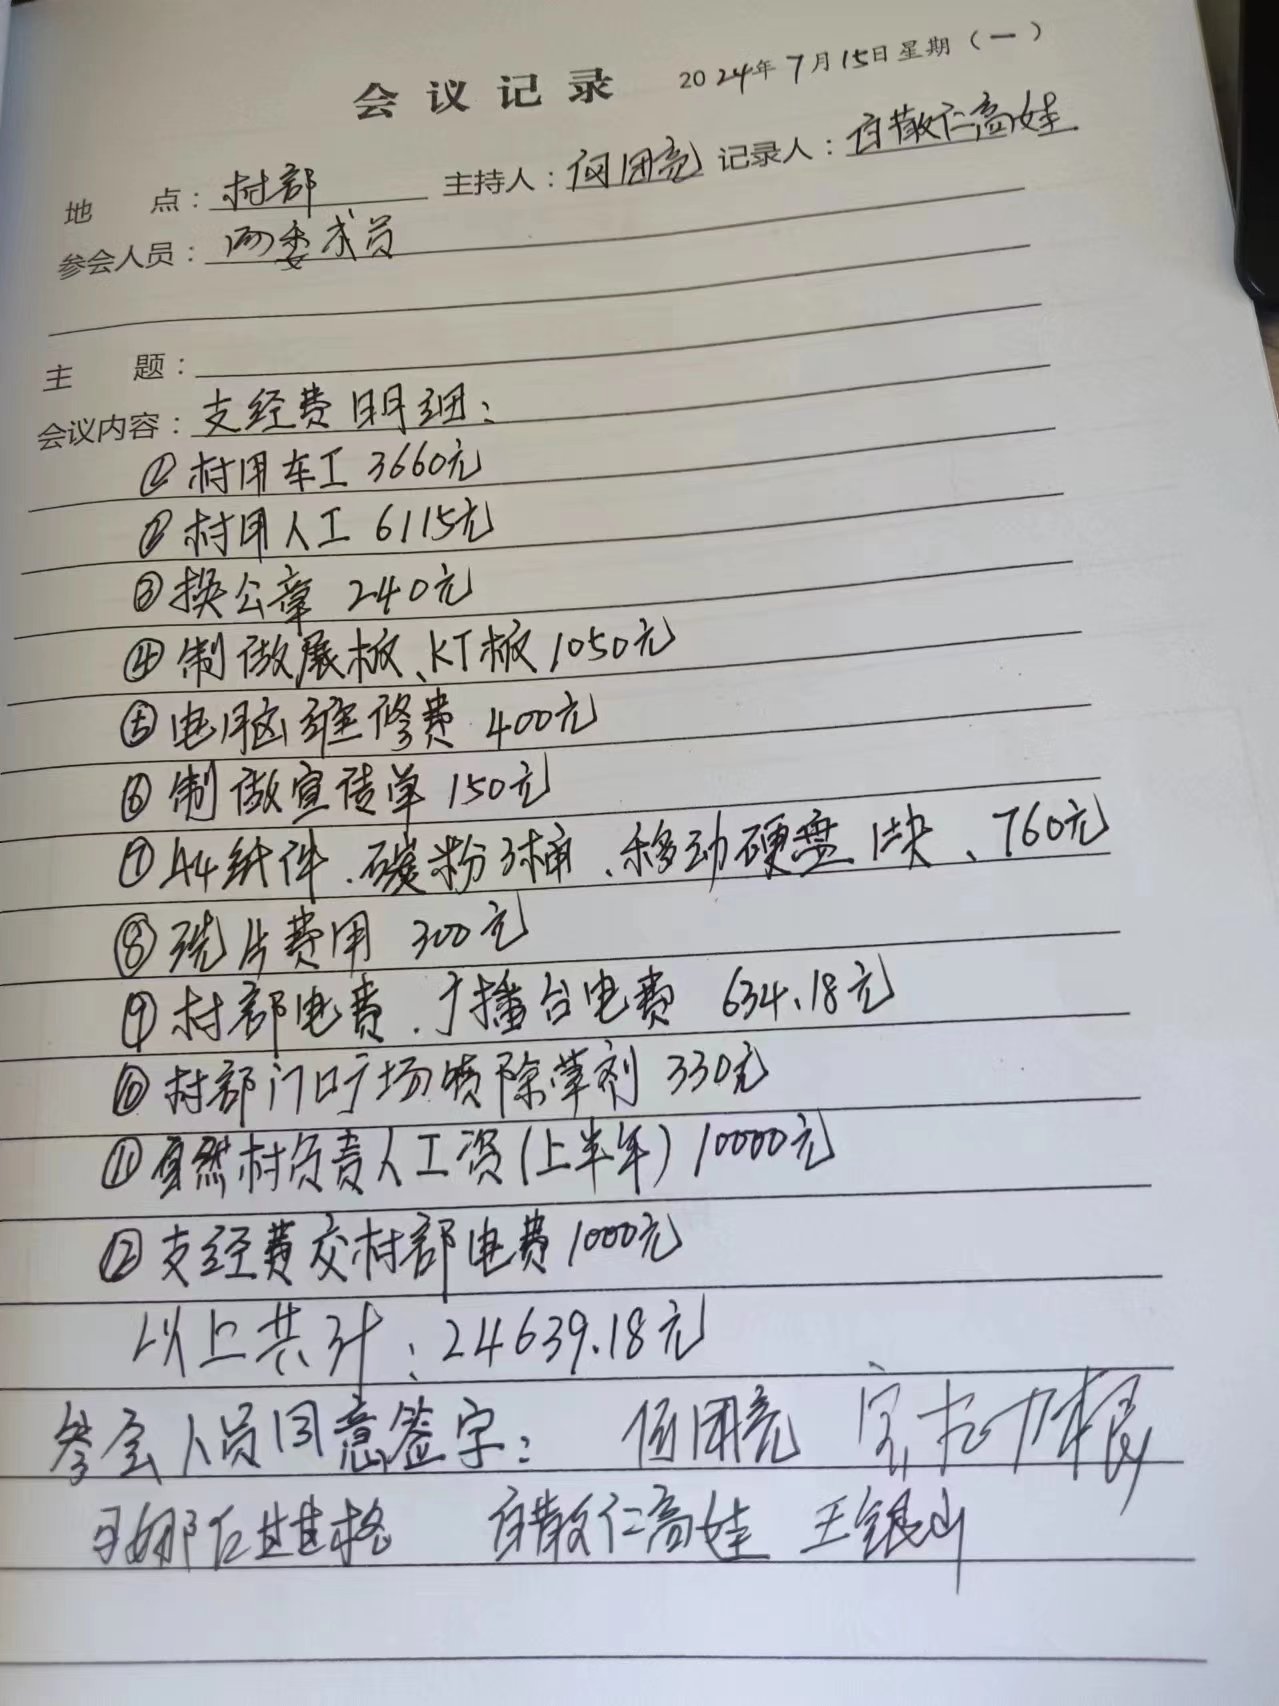 会议记录 2024年7月15日星期（一）
地 点：村部 主持人：何团亮 记录人：白散仁高娃
参会人员：两委成员
主 题：
会议内容：支经费明细：
①村用车工 3660元
②村用人工 6115元
③换公章 240元
④制做展板、KT板 1050元
⑤电脑维修费 400元
⑥制做宣传单 150元
⑦A4纸件、碳粉3桶、移动硬盘1块、760元
⑧洗片费用 300元
⑨村部电费、广播台电费 634.18元
⑩村部门口广场喷除草剂 330元
⑪自然村负责人工资(上半年) 10000元
⑫支经费交村部电费 1000元
以上共计：24639.18元
参会人员同意签字： 何团亮
白散仁高娃 王银山